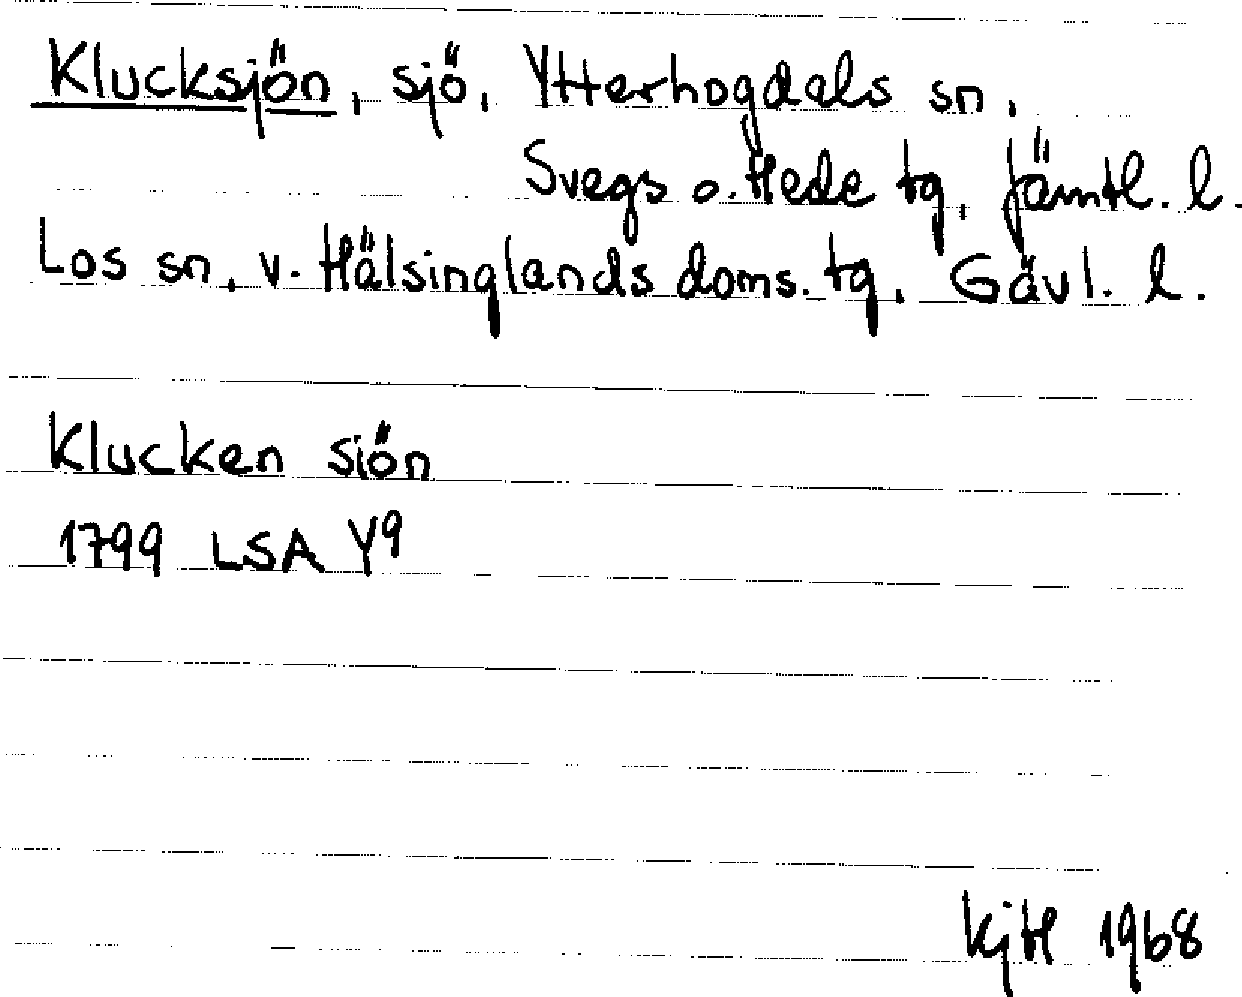 Klucksjön, sjö, Ytterhogdals sn,
Svegs o. Hede tg, Jämtl. l.
Los sn, v. Hälsinglands doms. tg, Gävl. l.
Klucken siön
1799 LSA Y9
1968